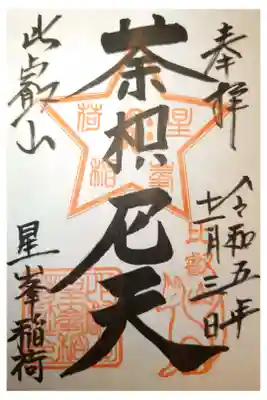 奉拝
令和五年
十一月三日
荼枳尼天
比叡山
星峯稲荷
星峯稲荷
比叡山